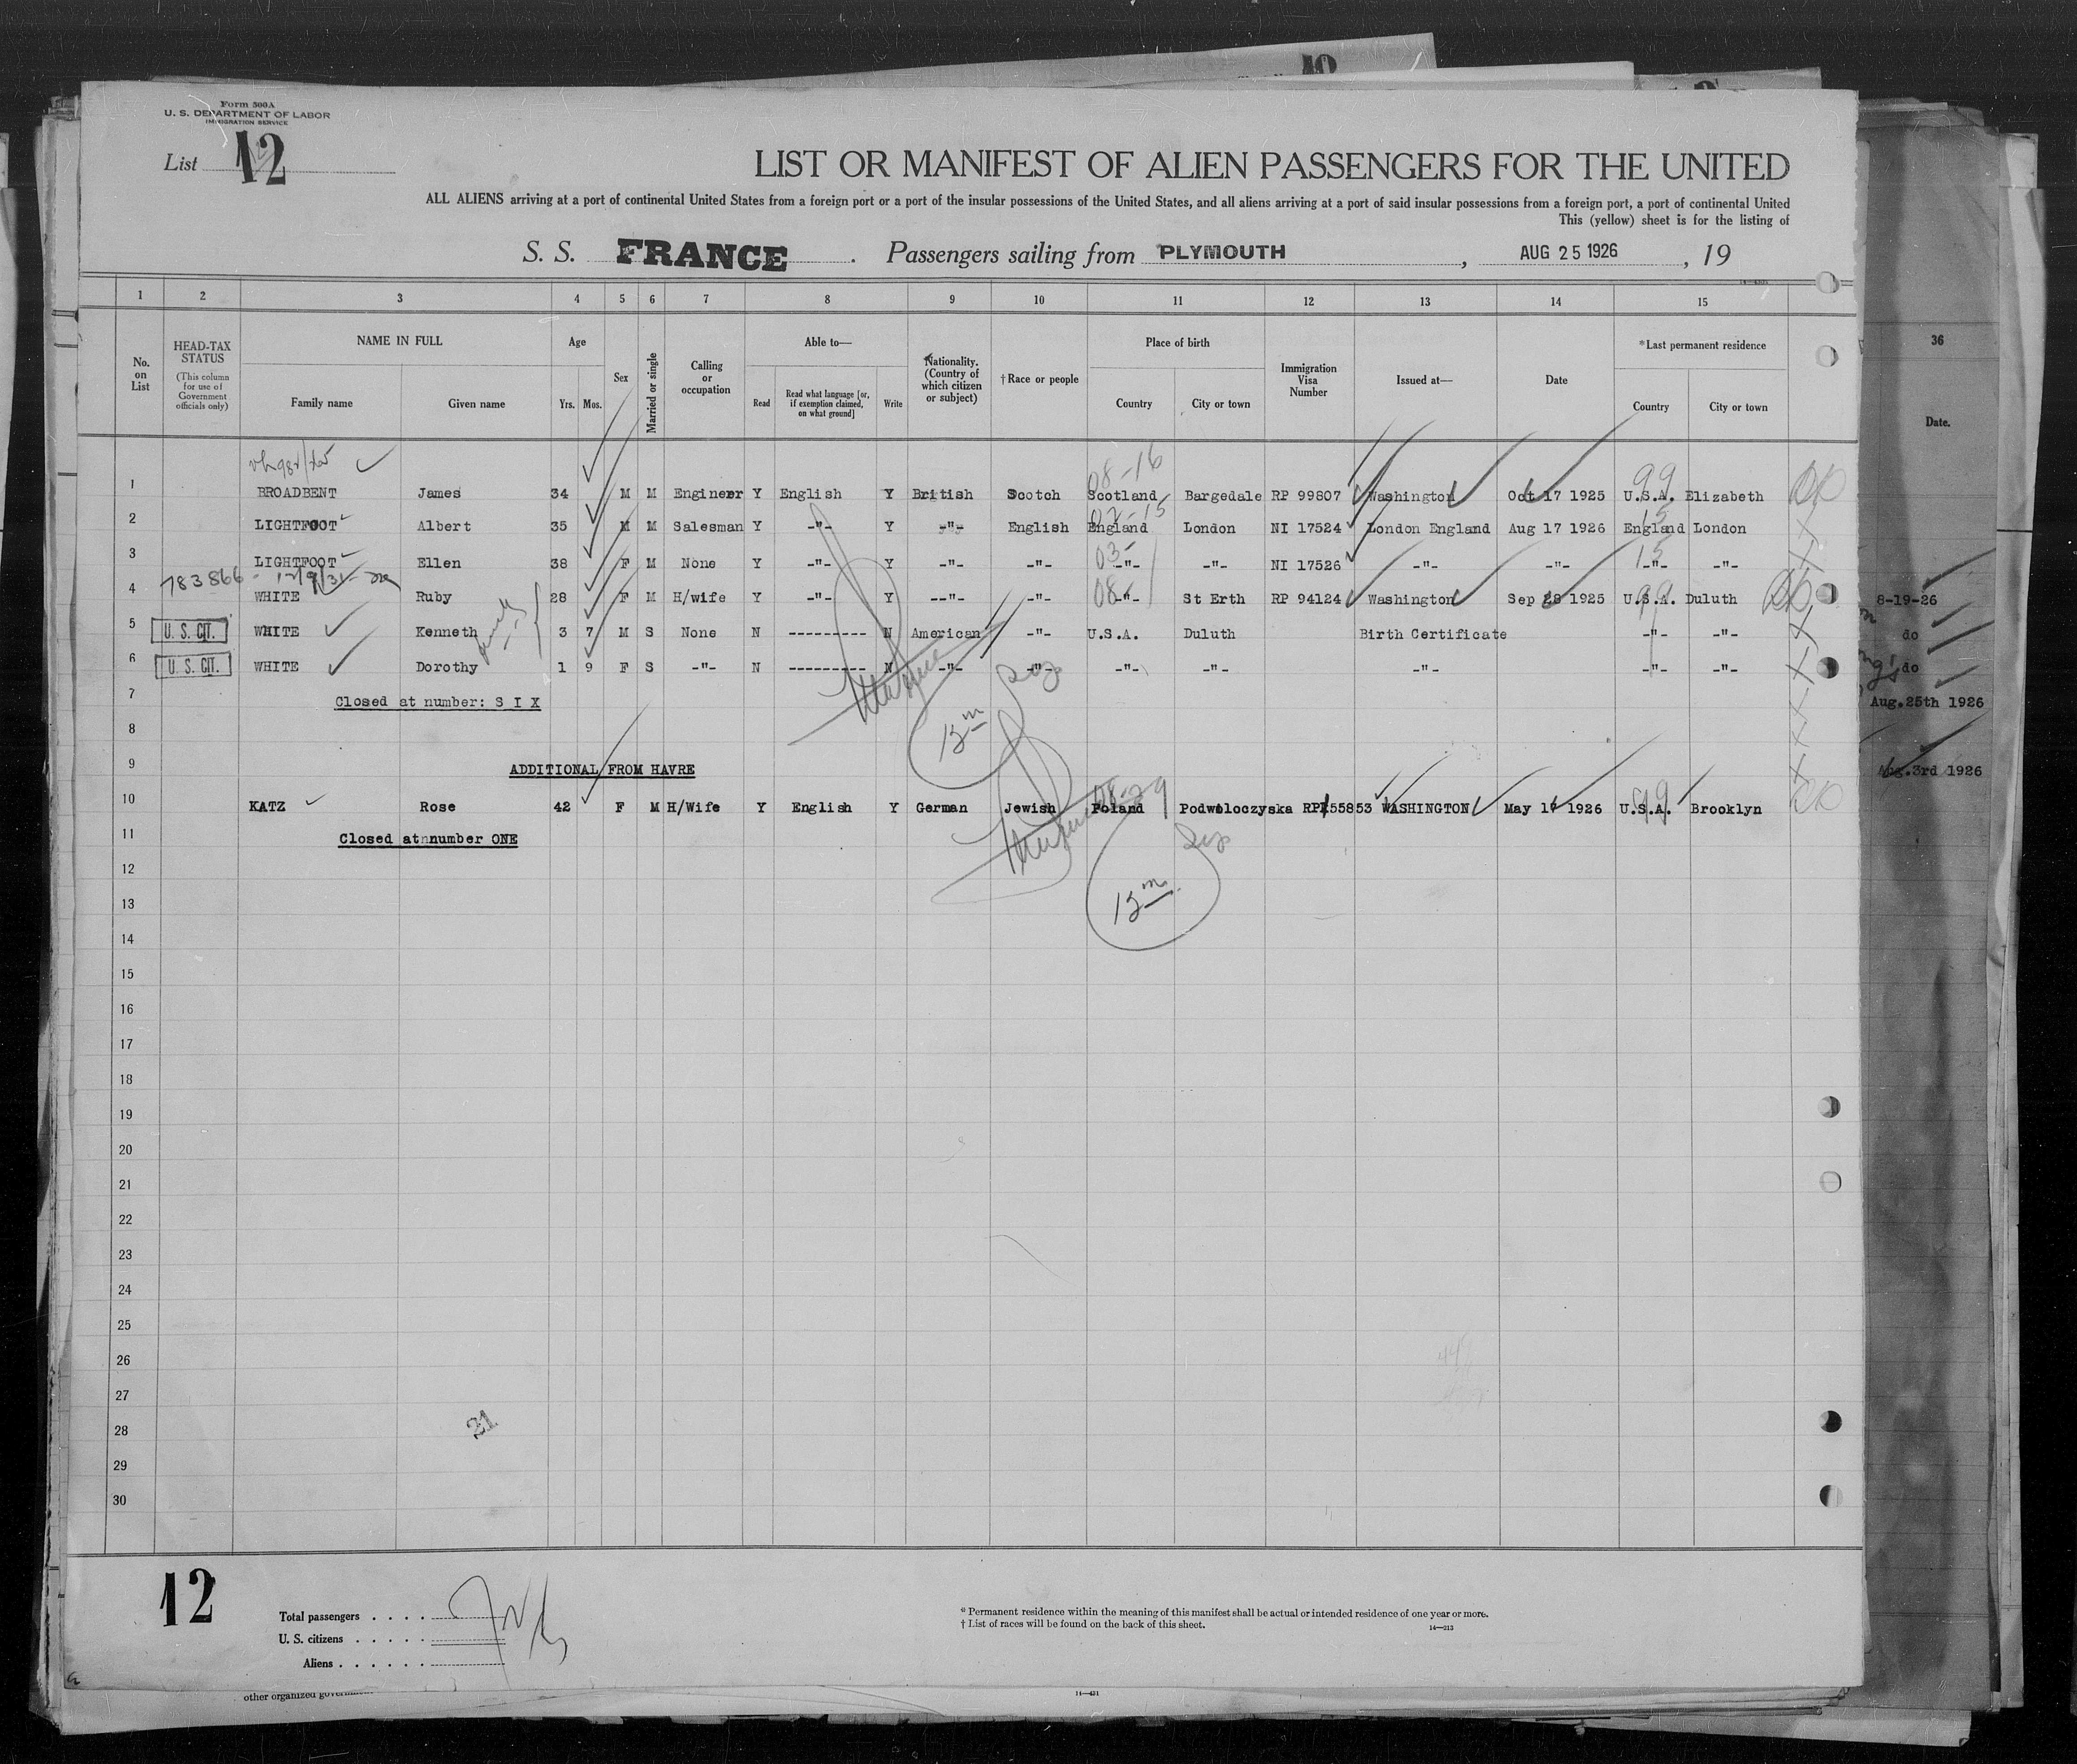 10
Form 500A
U. S. DEPARTMENT OF LABOR
IMMIGRATION SERVICE
List 12
LIST OR MANIFEST OF ALIEN PASSENGERS FOR THE UNITED
ALL ALIENS arriving at a port of continental United States from a foreign port or a port of the insular possessions of the United States, and all aliens arriving at a port of said insular possessions from a foreign port, a port of continental United
This (yellow) sheet is for the listing of
S. S. FRANCE . Passengers sailing from PLYMOUTH , AUG 25 1926 , 19
1 2 3 4 5 6 7 8 9 10 11 12 13 14 15
No. on List
HEAD-TAX STATUS (This column for use of Government officials only)
NAME IN FULL Family name Given name
Age Yrs. Mos.
Sex
Married or single
Calling or occupation
Able to— Read Read what language [or, if exemption claimed, on what ground] Write
Nationality. (Country of which citizen or subject)
† Race or people
Place of birth Country City or town
Immigration Visa Number
Issued at—
Date
* Last permanent residence Country City or town
36
Date.
08-16 99
1 BROADBENT James 34 M M Engineer Y English Y British Scotch Scotland Bargedale RP 99807 Washington Oct 17 1925 U.S.A. Elizabeth
02-15 15
2 LIGHTFOOT Albert 35 M M Salesman Y -"- Y -"- English England London NI 17524 London England Aug 17 1926 England London
03- 15
3 LIGHTFOOT Ellen 38 F M None Y -"- Y -"- -"- -"- -"- NI 17526 -"- -"- -"- -"-
783866 - 12/9/31
08- 99
4 WHITE Ruby 28 F M H/wife Y -"- Y --"- -"- -"- St Erth RP 94124 Washington Sep 28 1925 U.S.A. Duluth
8-19-26
5 U. S. CIT. WHITE Kenneth 3 7 M S None N ---------- N American -"- U.S.A. Duluth Birth Certificate -"- -"-
do
6 U. S. CIT. WHITE Dorothy 1 9 F S -"- N ---------- N -"- -"- -"- -"- -"- -"- -"-
do
7 Closed at number: S I X
Aug.25th 1926
8
9 ADDITIONAL FROM HAVRE
Aug.3rd 1926
08-29 99
10 KATZ Rose 42 F M H/Wife Y English Y German Jewish Poland Podwoloczyska RP 55853 WASHINGTON May 17 1926 U.S.A. Brooklyn
11 Closed atnnumber ONE
12
13
14
15
16
17
18
19
20
21
22
23
24
25
26
27
28
29
30
21
12
Total passengers
U. S. citizens
Aliens
* Permanent residence within the meaning of this manifest shall be actual or intended residence of one year or more.
† List of races will be found on the back of this sheet.
14—213
other organized
14—431